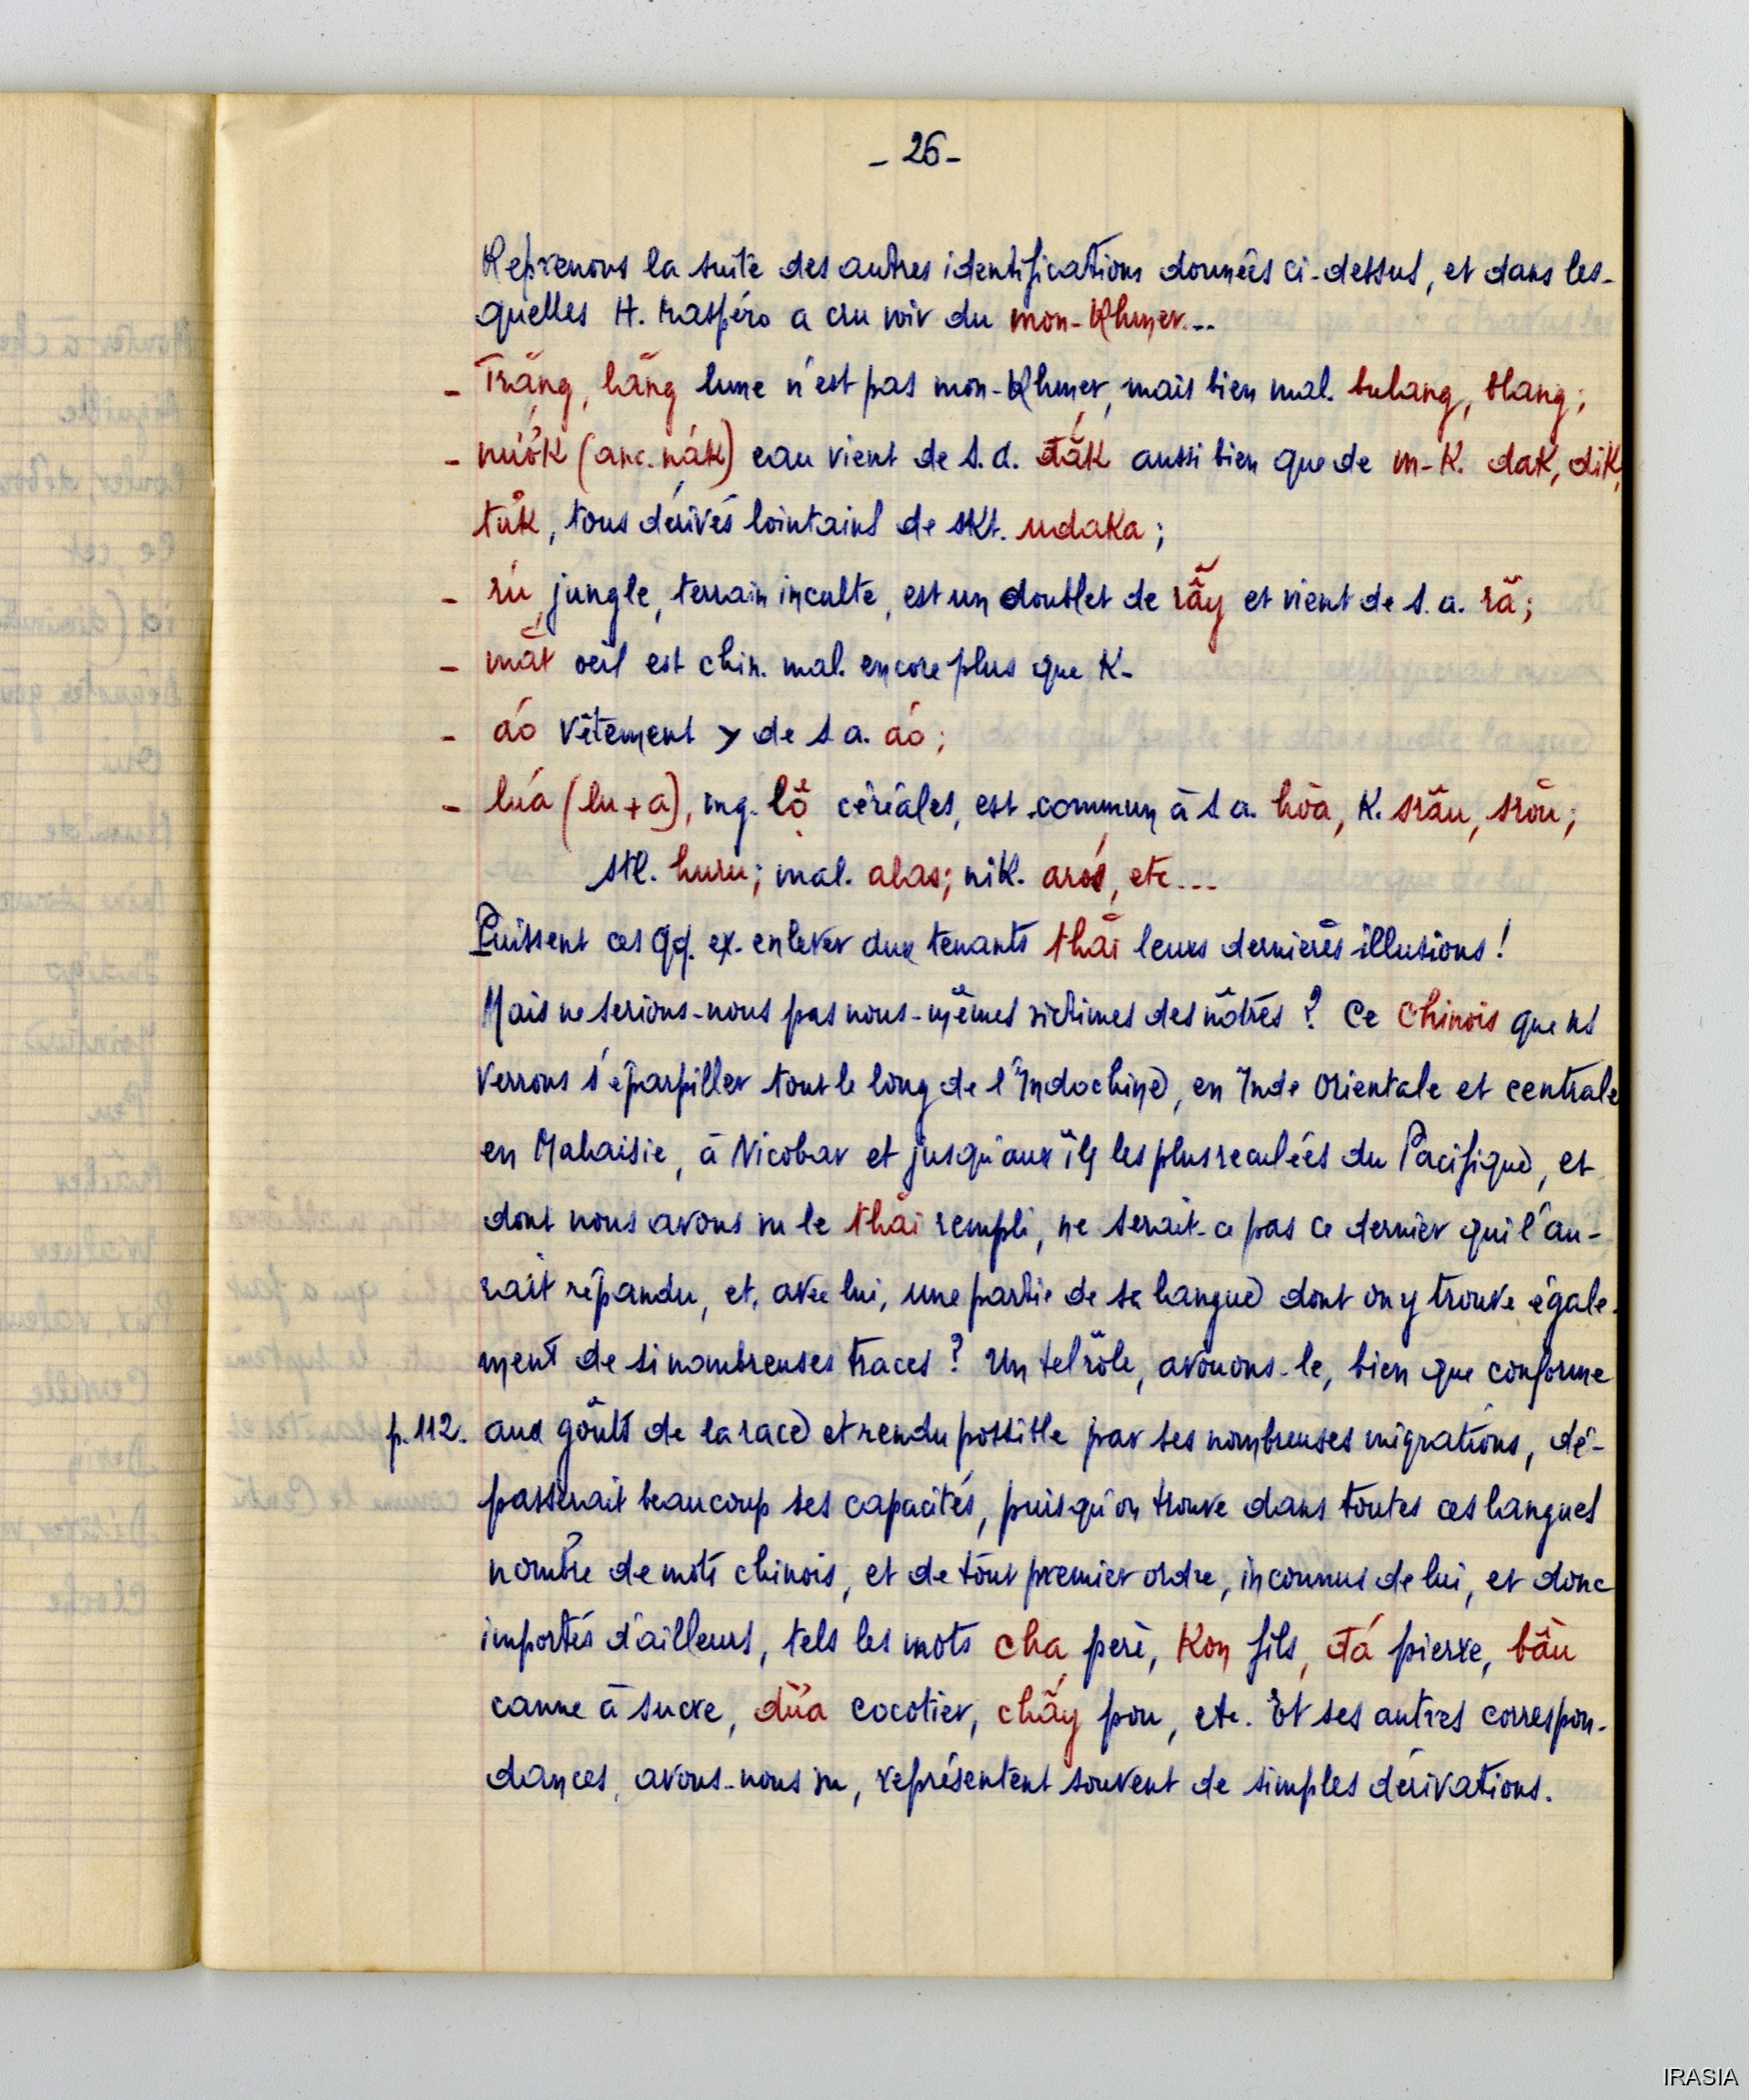 - 26 -
Reprenons la suite des autres identifications données ci-dessus, et dans les-
quelles H. Maspéro a cru voir du mon-Khmer...
- Trăng, lăng lune n'est pas mon-Khmer, mais bien mal. bulang, blang;
- nước (anc. nák) eau vient de s.a. đắk aussi bien que de m-K. dak, dik,
tưk, tous dérivés lointains de skt. udaka;
- rú jungle, terrain inculte, est un doublet de rẫy et vient de s.a. ră;
- mắt oeil est chin. mal. encore plus que K-
- áo vêtement > de s a. áo;
- lúa (lu+a), mg. lọ̃ céréales, est commun à s a. hòa, K. srâu, srōu;
stl. huru; mal. alas; nik. arós, etc...
Puissent ces qq. ex. enlever aux tenants thaï leurs dernières illusions!
Mais ne serions-nous pas nous-mêmes victimes des nôtres? Ce Chinois que ns
verrons s'éparpiller tout le long de l'Indochine, en Inde Orientale et centrale
en Malaisie, à Nicobar et jusqu'aux îls les plus reculées du Pacifique, et
dont nous avons vu le thaï rempli, ne serait-ce pas ce dernier qui l'au-
rait répandu, et, avec lui, une partie de sa langue dont on y trouve égale-
ment de si nombreuses traces? Un tel rôle, avouons-le, bien que conforme
p. 112. aux goûts de la race et rendu possible par ses nombreuses migrations, dé-
passerait beaucoup ses capacités, puisqu'on trouve dans toutes ces langues
nombre de mots chinois, et de tout premier ordre, inconnus de lui, et donc
importés d'ailleurs, tels les mots cha père, Kon fils, đá pierre, bâu
canne à sucre, dừa cocotier, chấy pou, etc. Et ses autres correspon-
dances, avous-nous vu, représentent souvent de simples dérivations.
IRASIA